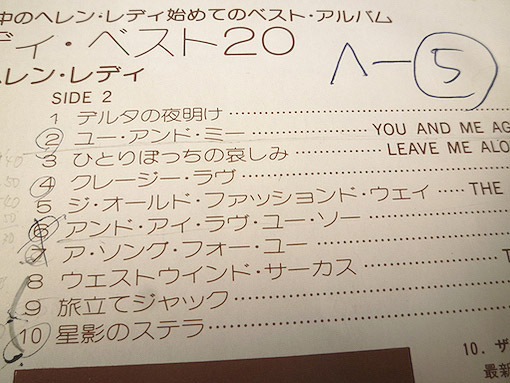 中のヘレン・レディ始めてのベスト・アルバム
ディ・ベスト20
ヘレン・レディ
ヘ-⑤
SIDE 2
1 デルタの夜明け
② ユー・アンド・ミー YOU AND ME AG
3 ひとりぼっちの哀しみ LEAVE ME ALO
④ クレージー・ラヴ
5 ジ・オールド・ファッションド・ウェイ THE
⑥ アンド・アイ・ラヴ・ユー・ソー
⑦ ア・ソング・フォー・ユー
8 ウエストウインド・サーカス
9 旅立てジャック
⑩ 星影のステラ
10. ザ
最新